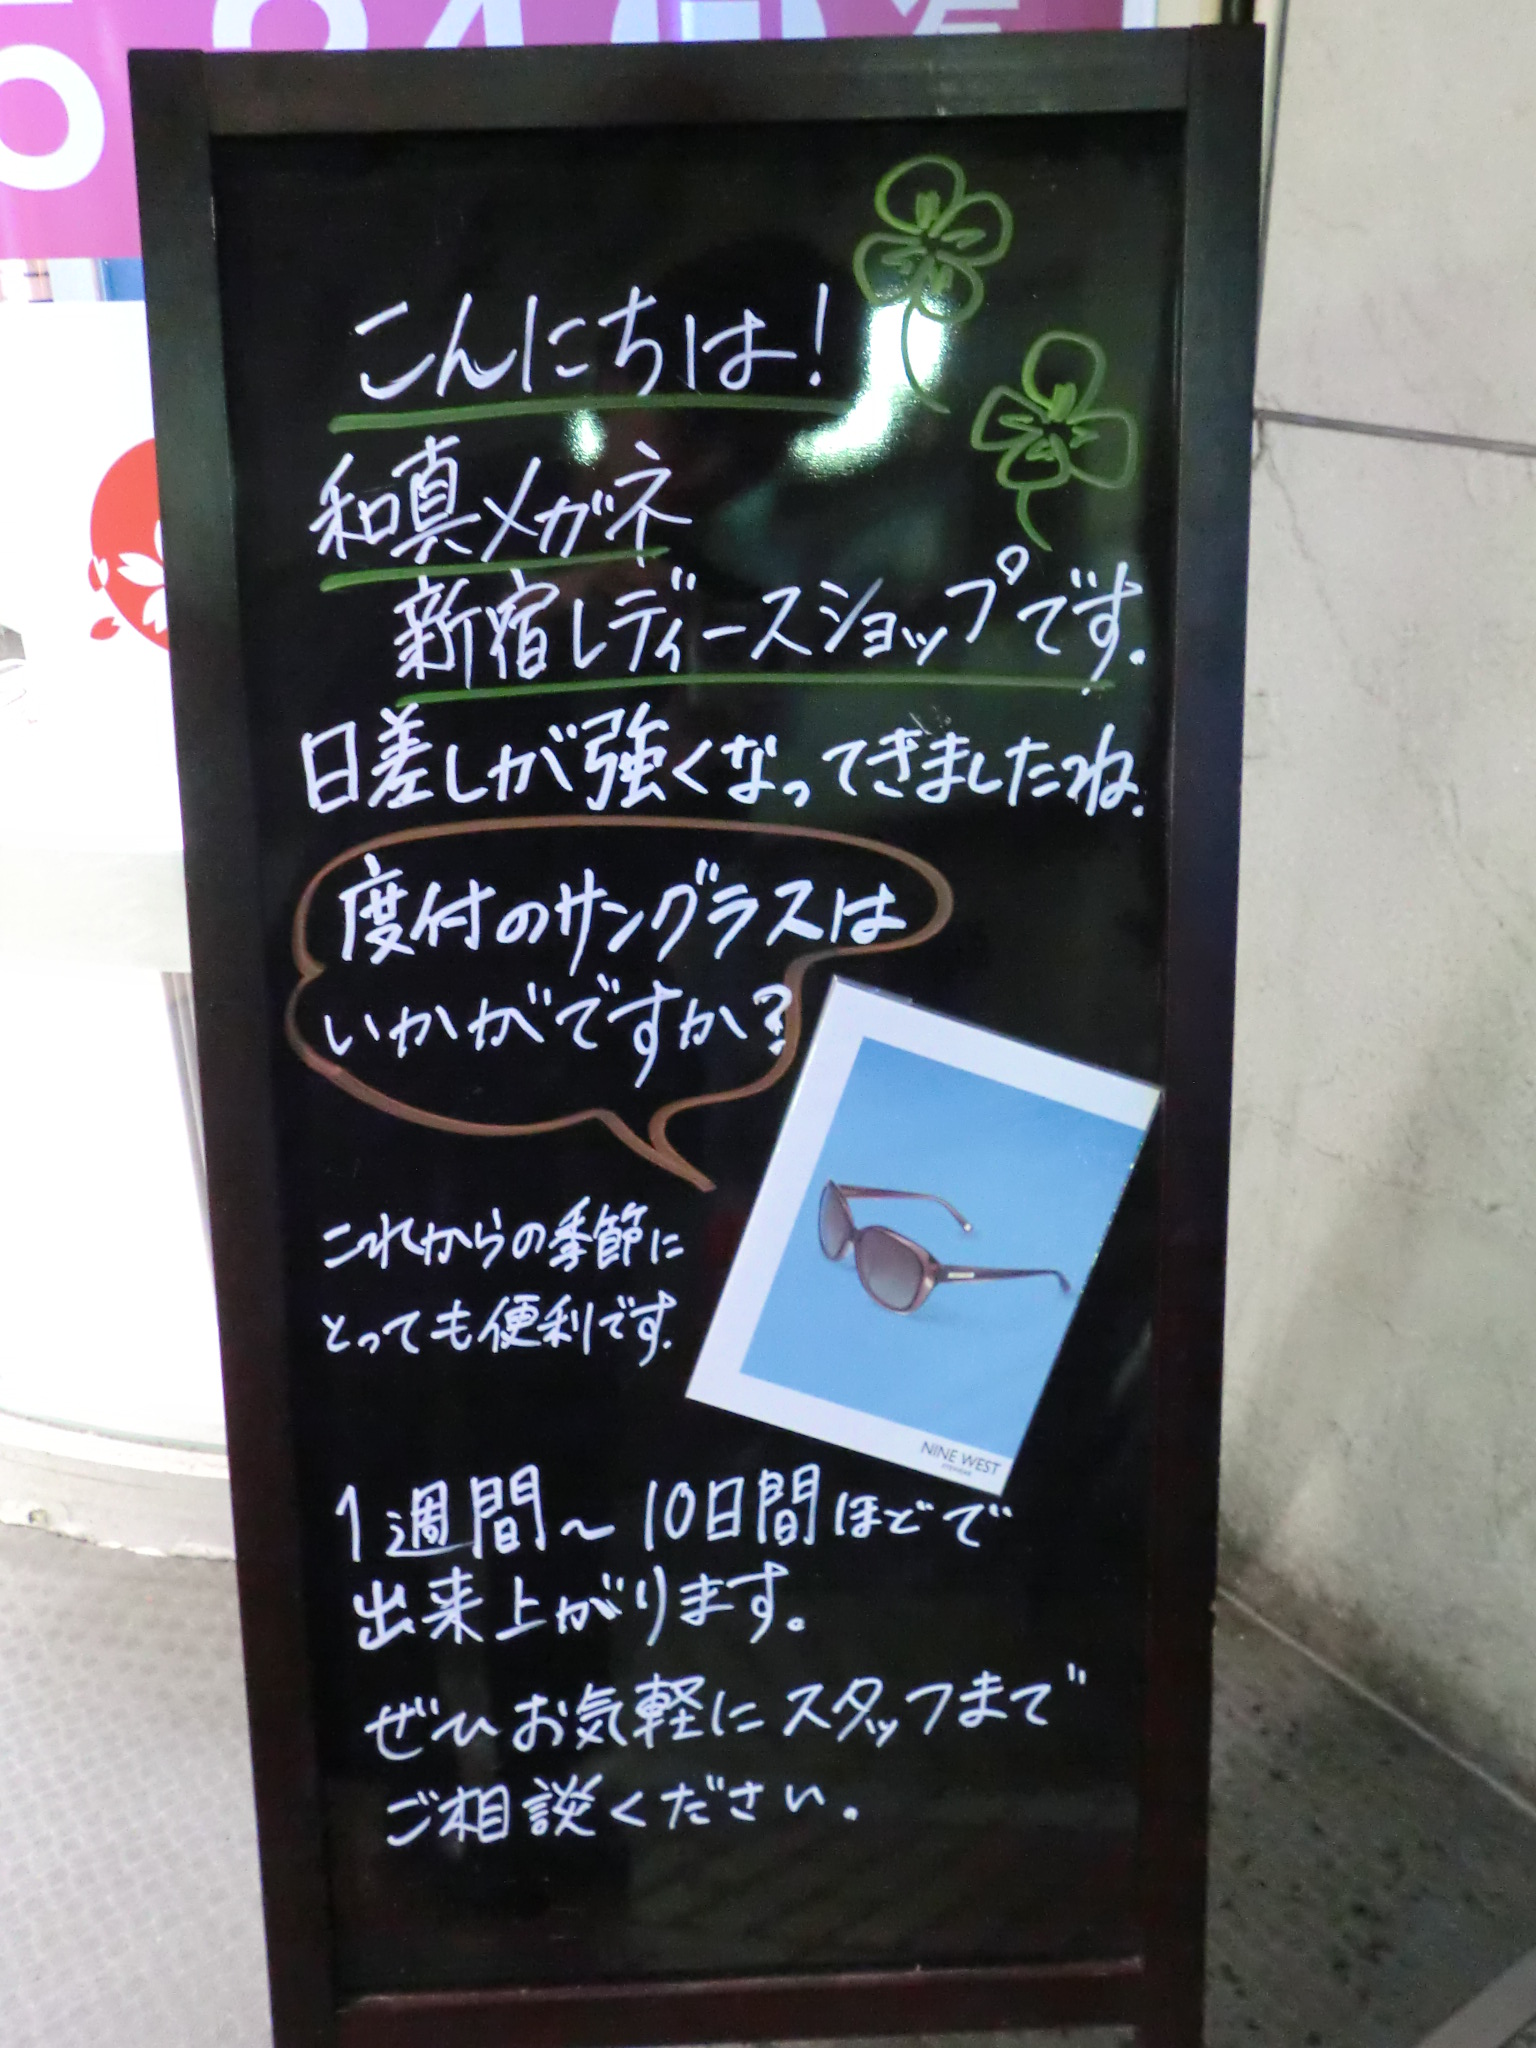 こんにちは!
和真メガネ
新宿レディースショップです.
日差しが強くなってきましたね.
度付のサングラスは
いかがですか?
これからの季節に
とっても便利です.
NINE WEST
1週間～10日間ほどで
出来上がります。
ぜひお気軽にスタッフまで
ご相談ください。